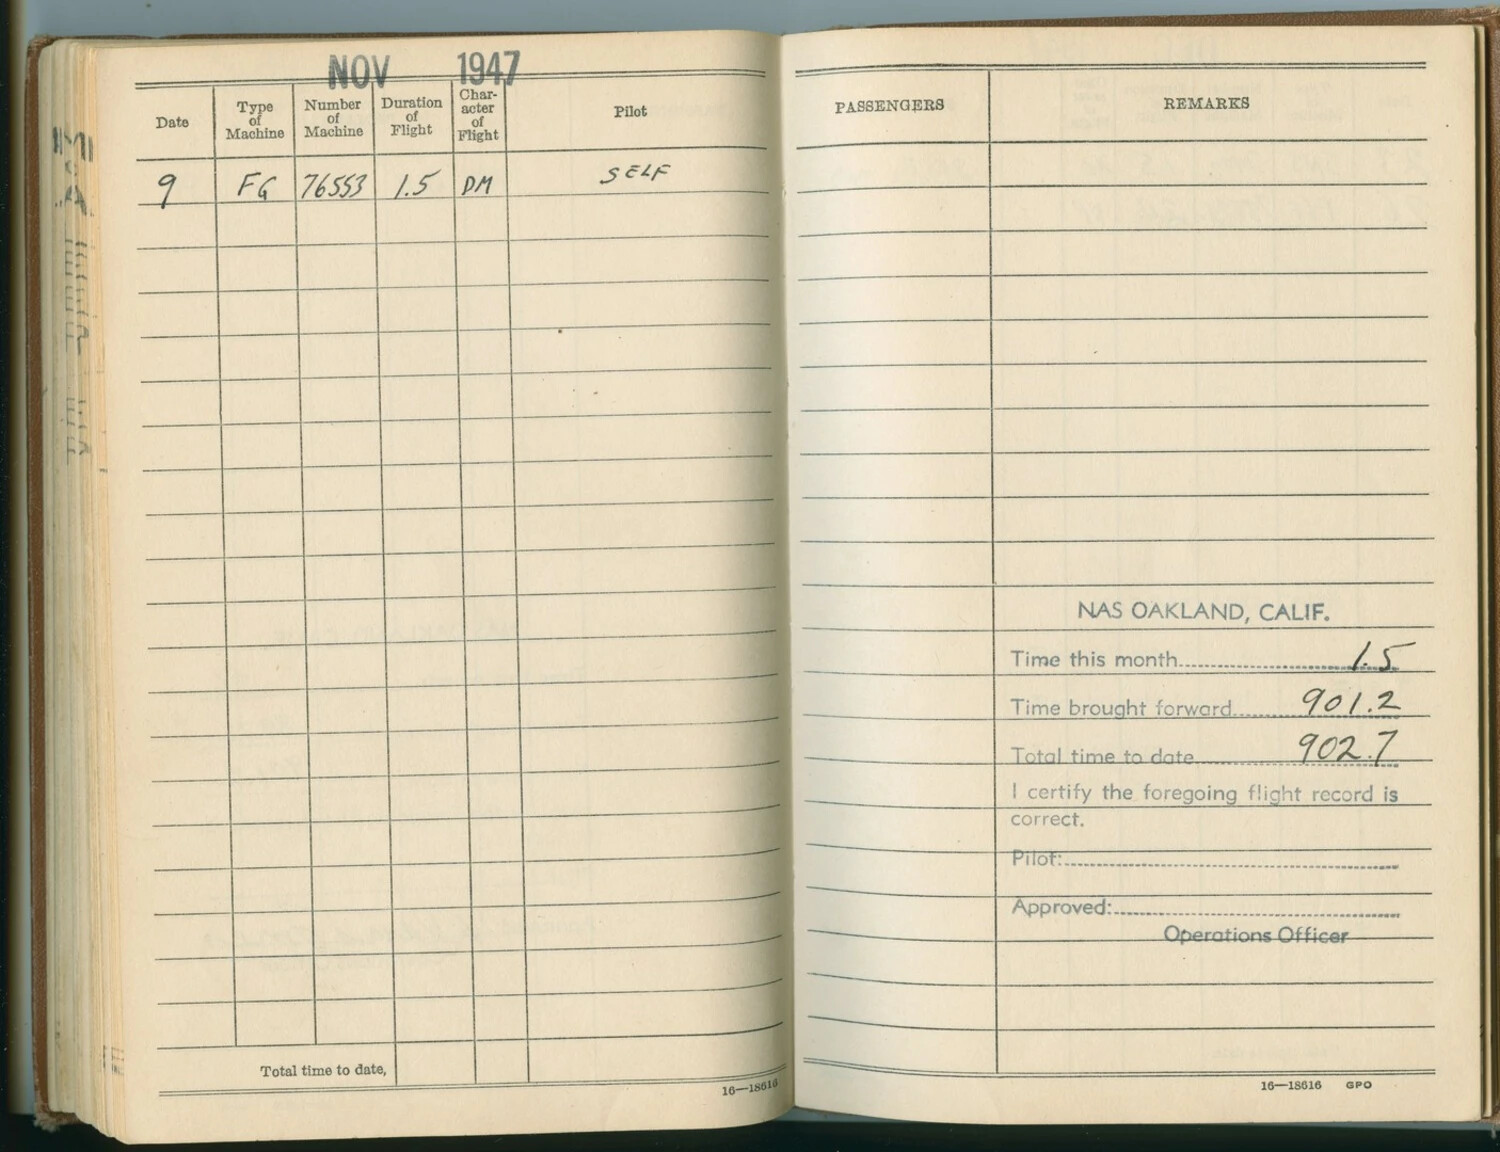 NOV 1947
Date
Type of Machine
Number of Machine
Duration of Flight
Char-acter of Flight
Pilot
9 FG 76553 1.5 DM SELF
Total time to date,
16—18616
PASSENGERS
REMARKS
NAS OAKLAND, CALIF.
Time this month 1.5
Time brought forward 901.2
Total time to date 902.7
I certify the foregoing flight record is
correct.
Pilot:
Approved:
Operations Officer
16—18616 GPO